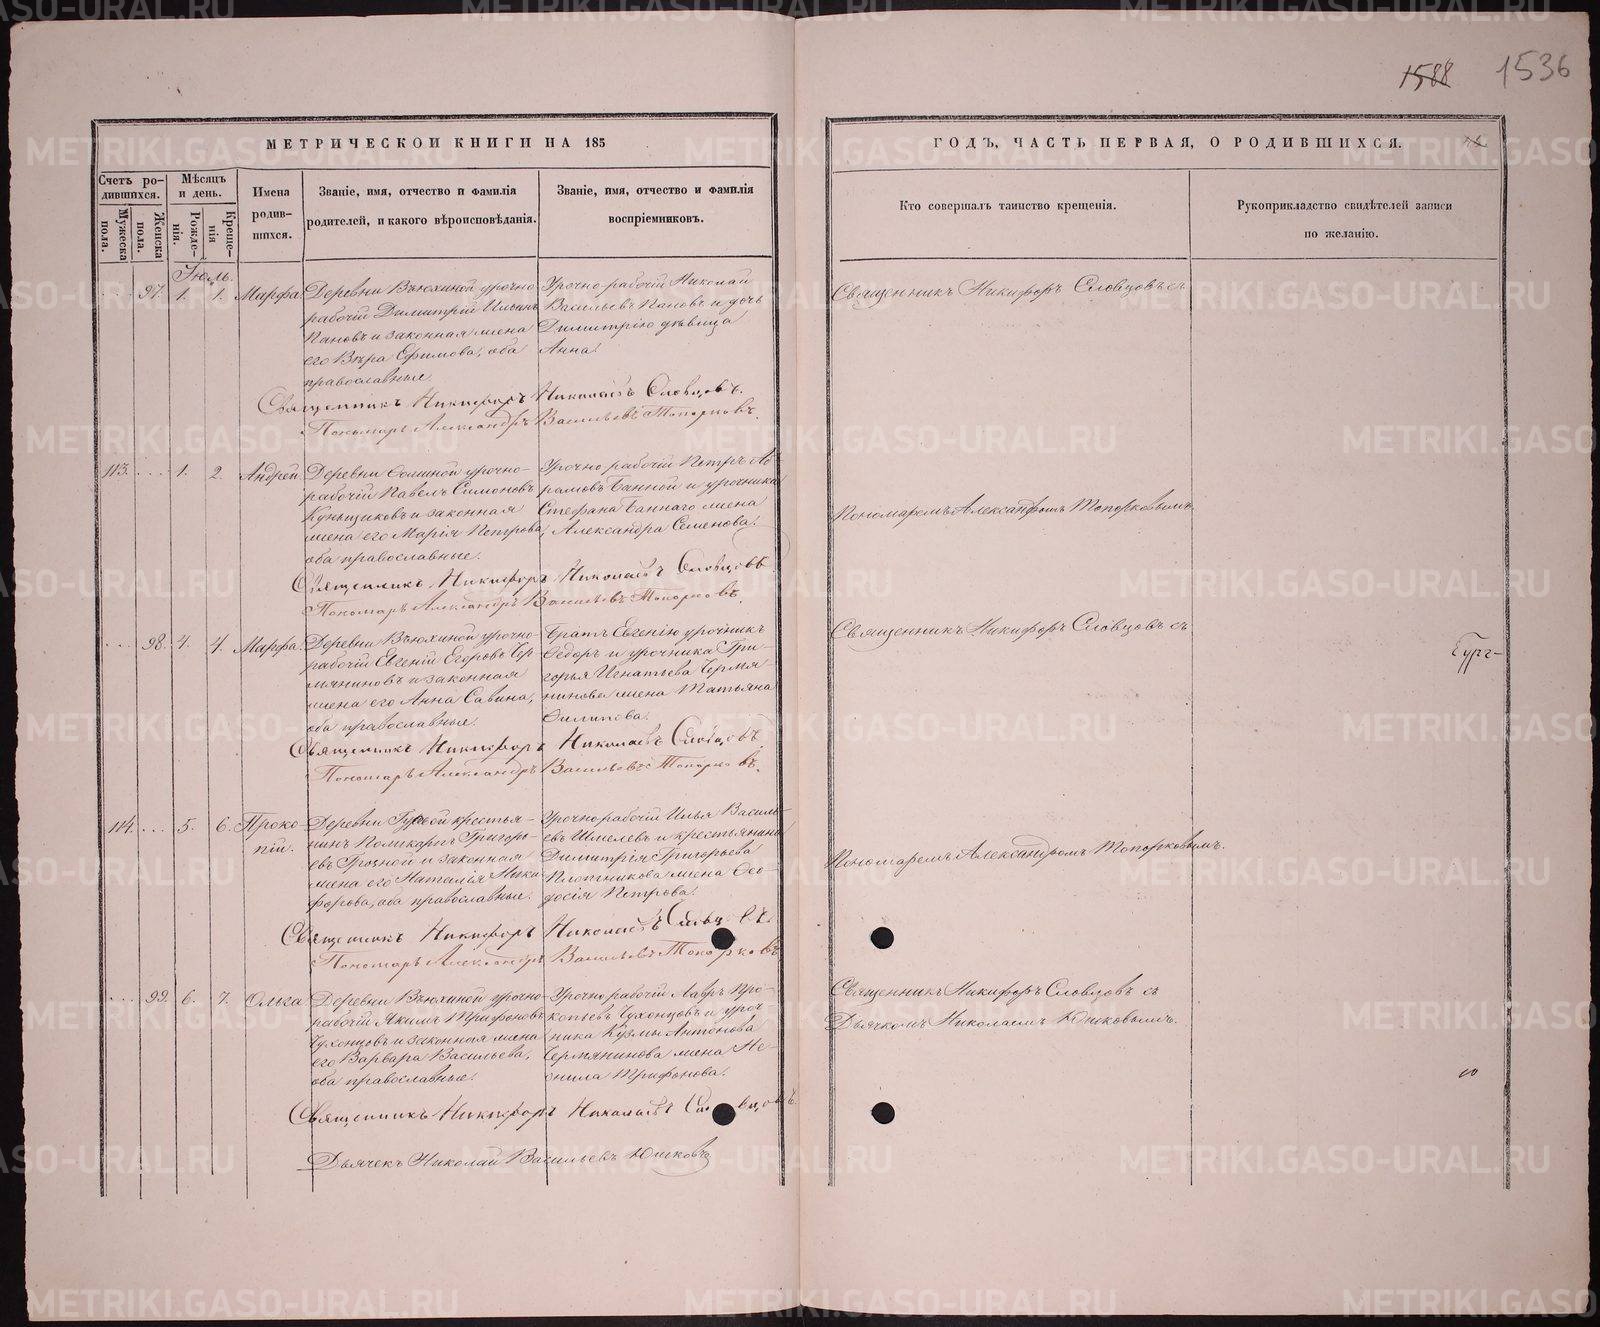 1588 1536
МЕТРИЧЕСКОЙ КНИГИ НА 185
Счетъ ро-
дившихся.
Мужеска
пола.
Женска
пола.
Мѣсяцъ
и день.
Рожде-
нія.
Креще-
нія
Имена
родив-
шихся.
Званіе, имя, отчество и фамилія
родителей, и какого вѣроисповѣданія.
Званіе, имя, отчество и фамилія
воспріемниковъ.
Іюль.
97. 1. 1. Марфа.
Деревни Вьюхиной урочно-
рабочій Димитрій Ильинъ
Пановъ и законная жена
его Вѣра Ефимова, оба
православные.
Урочно рабочій Николай
Васильевъ Пановъ и дочь
Димитрію дѣвица
Анна.
Священникъ Никифоръ Николаевъ Словцовъ.
Пономарь Александръ Васильевъ Топорковъ.
113. 1. 2. Андрей.
урочно-
рабочій Павелъ Симоновъ
и законная
жена его Марія Петрова,
оба православные.
Урочно рабочій Петръ Аб-
рамовъ Банной и урочника
Стефана Баннаго жена
Александра Семенова.
Священникъ Никифоръ Николаевъ Словцовъ.
Пономарь Александръ Васильевъ Топорковъ.
98. 4. 4. Марфа.
Деревни Вьюхиной урочно-
рабочій Евгеній Егоровъ Чер-
мяниновъ и законная
жена его Анна Савина,
оба православные.
Братъ Евгенію урочникъ
Ѳедоръ и урочника Гри-
горья Игнатьева Чермя-
нинова жена Татьяна
Филипова.
Священникъ Никифоръ Николаевъ Словцовъ.
Пономарь Александръ Васильевъ Топорковъ.
114. 5. 6. Проко-
пій.
Деревни крестья-
нинъ Поликарпъ Григорь-
евъ и законная
жена его Наталія Ники-
форова, оба православные.
Урочно рабочій Илья Василь-
евъ Шмелевъ и крестьянина
Димитрія Григорьева
Плотникова жена Ѳео-
досія Петрова.
Священникъ Никифоръ Николаевъ Словцовъ.
Пономарь Александръ Васильевъ Топорковъ.
99. 6. 7. Ольга.
Деревни Вьюхиной урочно-
рабочій Якимъ Трифоновъ
Чухонцовъ и законная жена
его Варвара Васильева,
оба православные.
Урочно рабочій Лавръ Про-
копьевъ Чухонцовъ и уроч-
ника Кузмы Антонова
Чермянинова жена Не-
онила Трифонова.
Священникъ Никифоръ Николаевъ Словцовъ.
Дьячекъ Николай Васильевъ Юшковъ
ГОДЪ, ЧАСТЬ ПЕРВАЯ, О РОДИВШИХСЯ.
Кто совершалъ таинство крещенія.
Рукоприкладство свидѣтелей записи
по желанію.
Священникъ Никифоръ Словцовъ съ
Пономаремъ Александромъ Топорковымъ.
Священникъ Никифоръ Словцовъ съ
Пономаремъ Александромъ Топорковымъ.
Священникъ Никифоръ Словцовъ съ
Дьячкомъ Николаемъ Юшковымъ.
METRIKI.GASO-URAL.RU